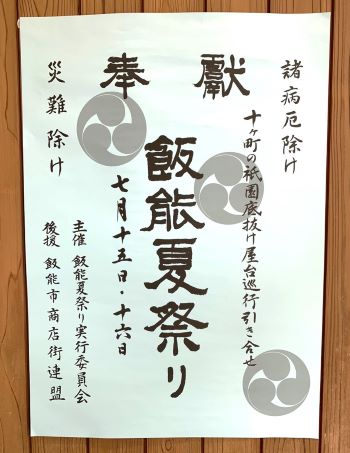 奉獻
諸病厄除け
十ヶ町の祇園底抜け屋台巡行引き合せ
飯能夏祭り
七月十五日・十六日
主催 飯能夏祭り実行委員会
後援 飯能市商店街連盟
災難除け